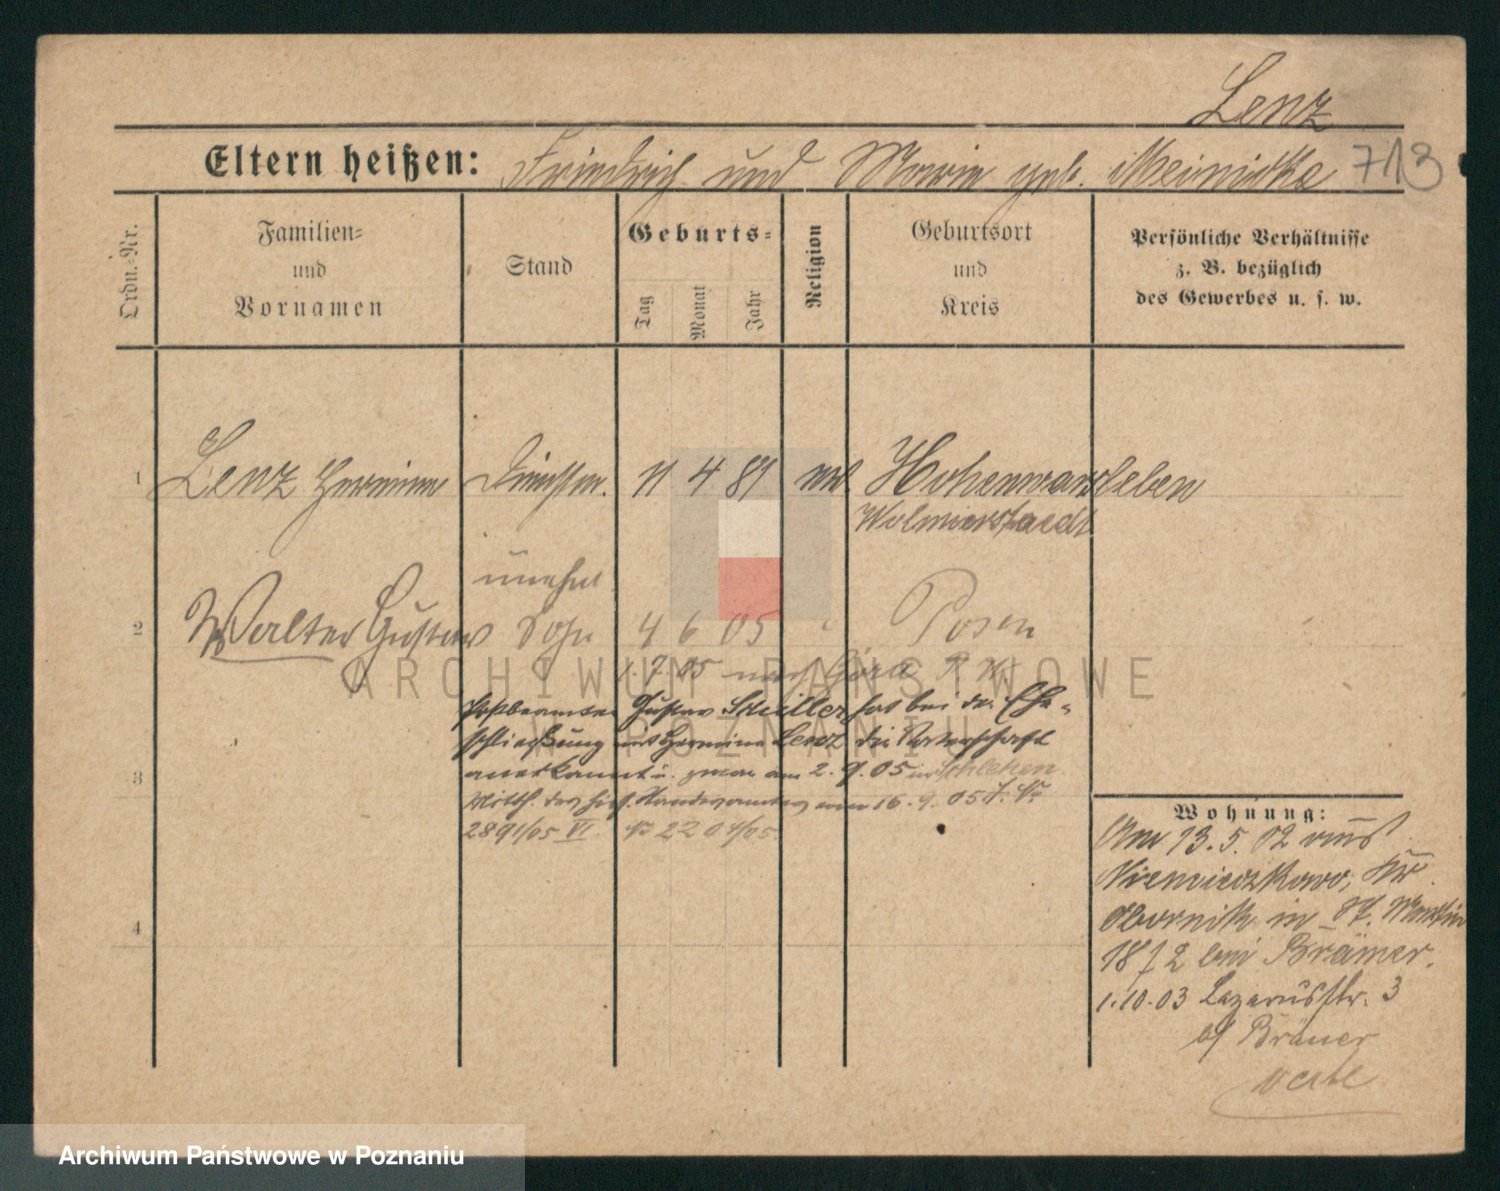 Lenz
Eltern heißen: Friedrich und Marie geb. Meinicke 713
Ordn.-Nr.
Familien-
und
Vornamen
Stand
Geburts-
Tag
Monat
Jahr
Religion
Geburtsort
und
Kreis
Persönliche Verhältnisse
z. B. bezüglich
des Gewerbes u. s. w.
1 Lenz Hermine 11 4 81 Hohenwarsleben
Wolmierstaedt
unehel.
2 Walter Gustav Sohn 4 6 05 Posen
7 05 nach
ARCHIWUM PAŃSTWOWE
W POZNANIU
Postbeamter Gustav hat bei der Ehe-
schließung mit Hermine Lenz die Vaterschaft
3 anerkannt u. zwar am 2. 9. 05 in
Mitth. des Standesamtes vom 16. 9. 05 J. No
2891/05 VI. No 2204/05.
4
Wohnung:
Am 13. 5. 02 aus
Niemieczkowo, Kr.
Obornik in St. Martin
bei Brämer.
1. 10. 03 Lazarusstr. 3
b/ Bräuer
verte
Archiwum Państwowe w Poznaniu